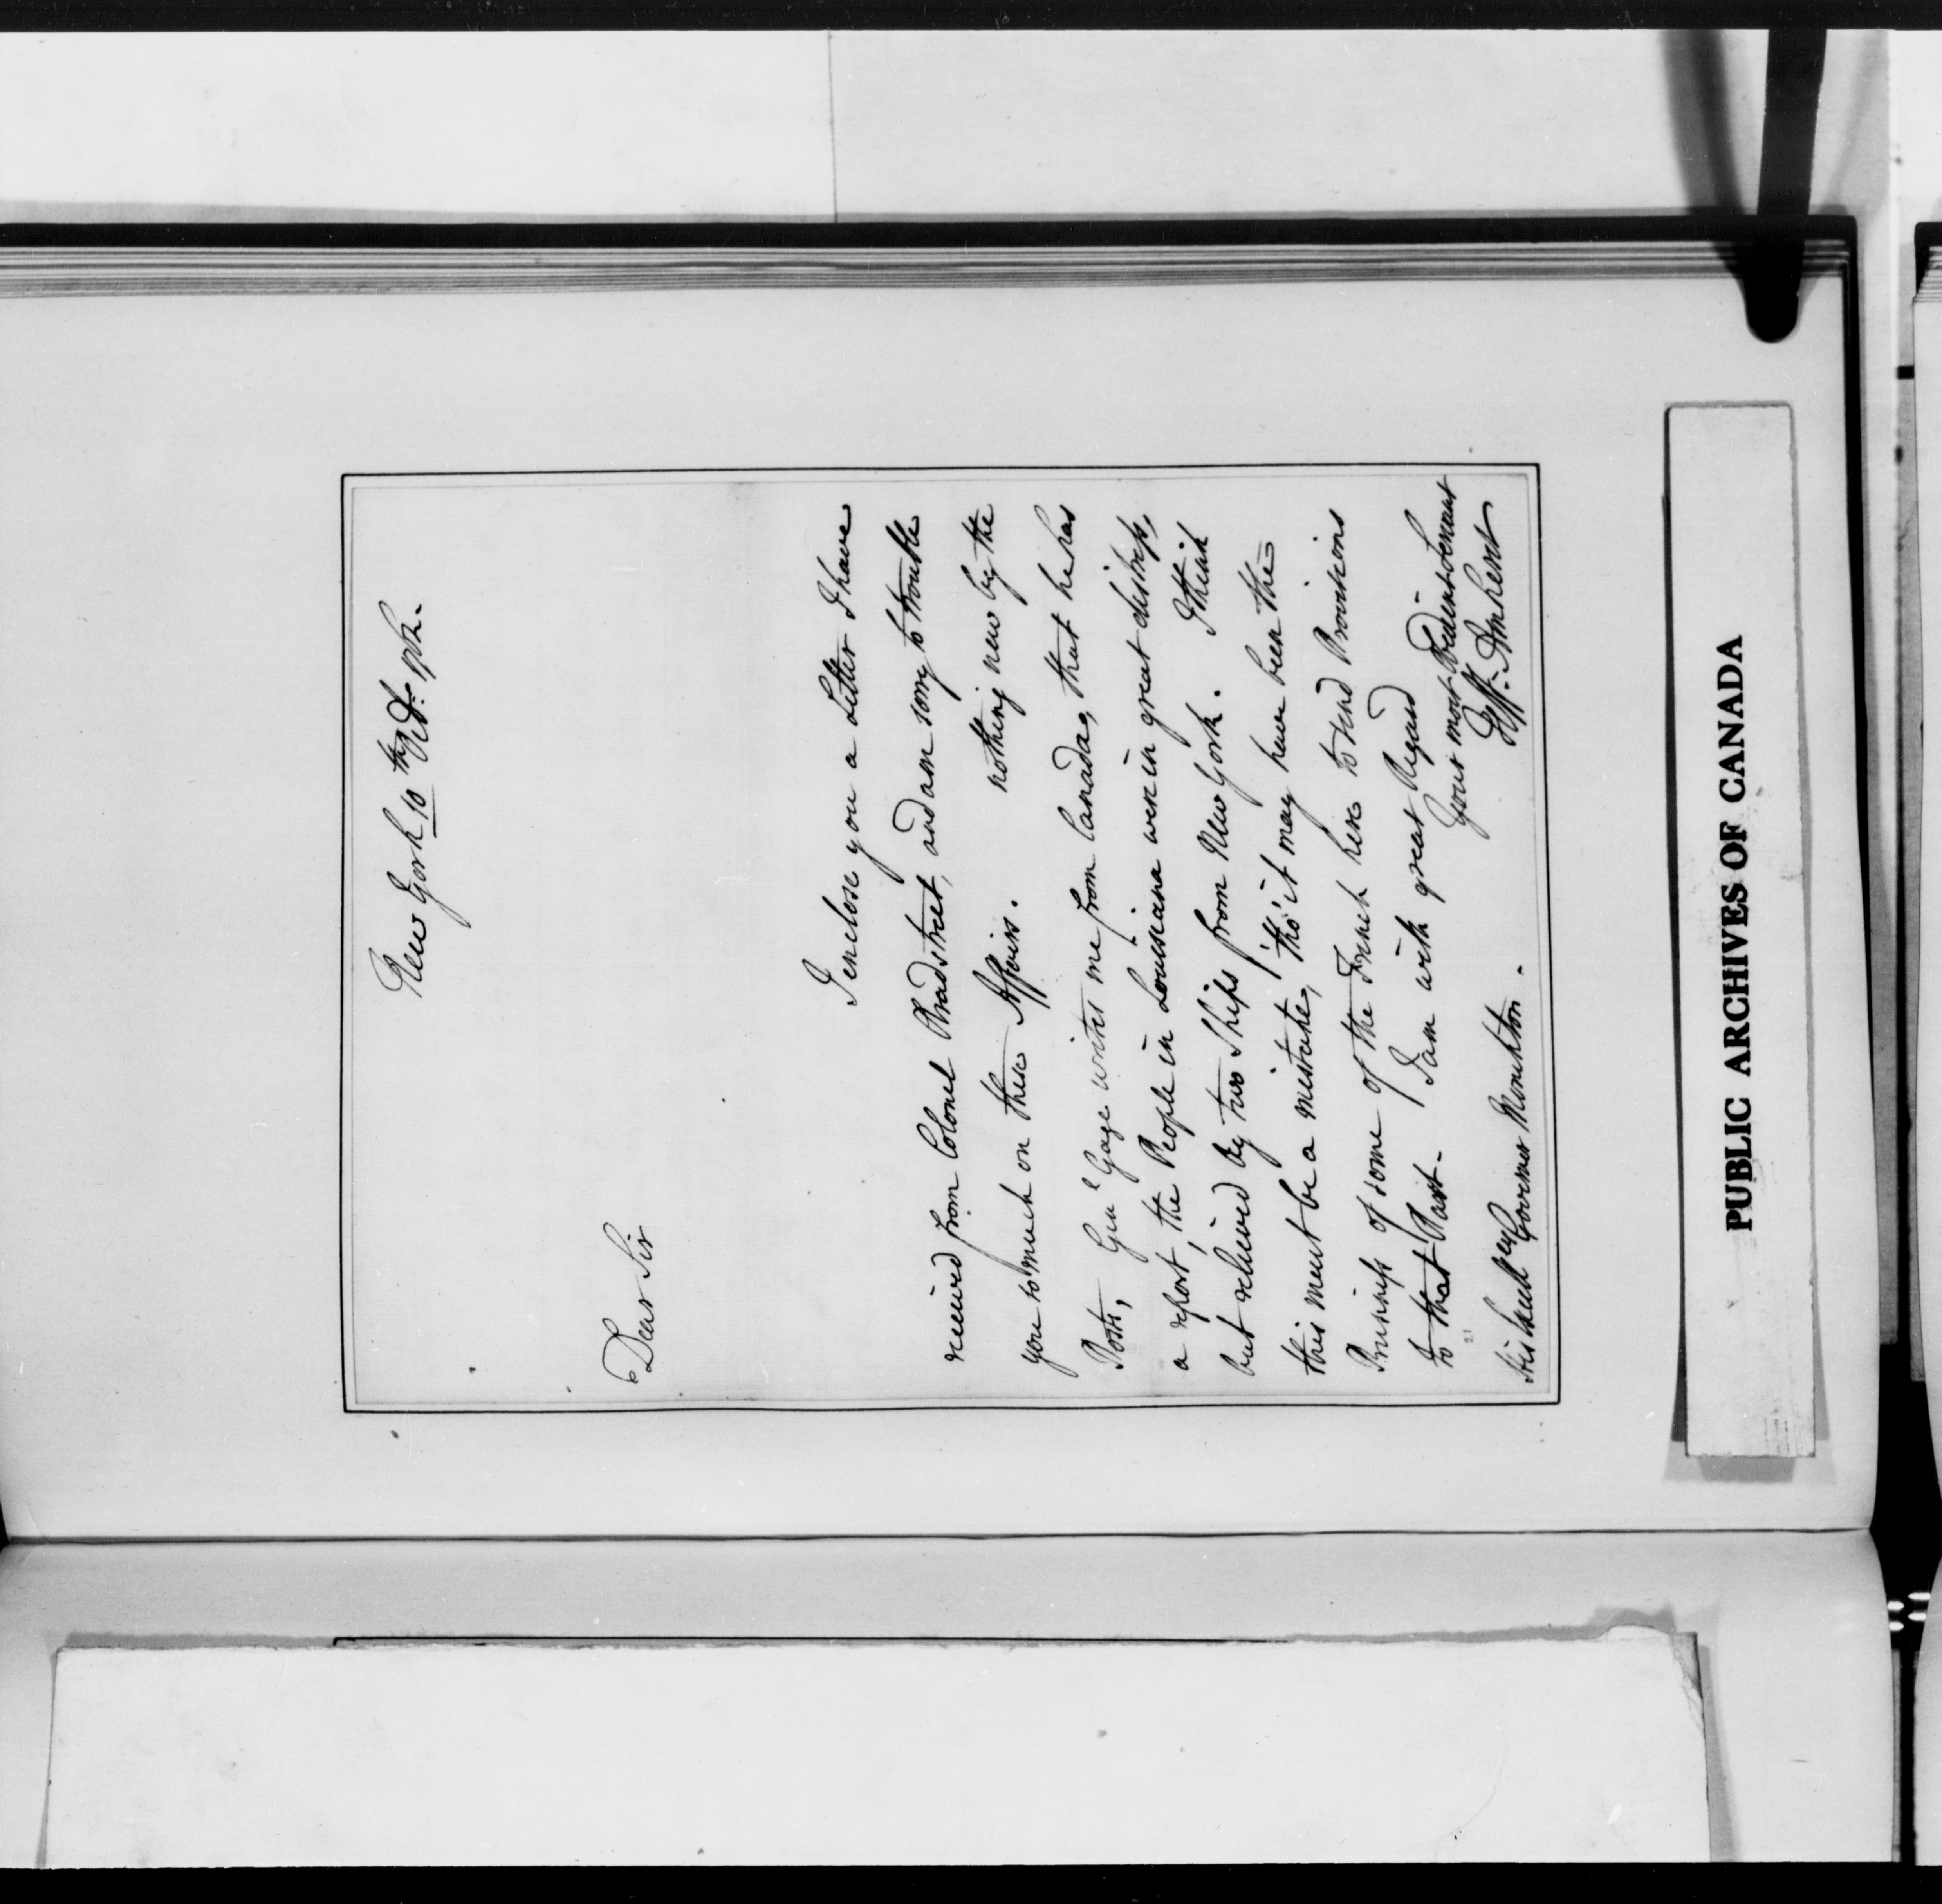 New York 10th Octr. 1762.
Dear Sir
I enclose you a Letter I have
received from Colonel Bradstreet, and am sorry to trouble
you so much on these Affairs. nothing new by the
Posts, Genl Gage writes me from Canada, that he has
a report, the People in Louisiana were in great distress,
but relieved by two Ships from New York. I think
this must be a mistake, tho' it may have been the
business of some of the French here to send Provisions
to that Part. I am with great Regard
Your most Obedient Servant
Jeff: Amherst
His Excell'cy Governor Monckton.
21
PUBLIC ARCHIVES OF CANADA